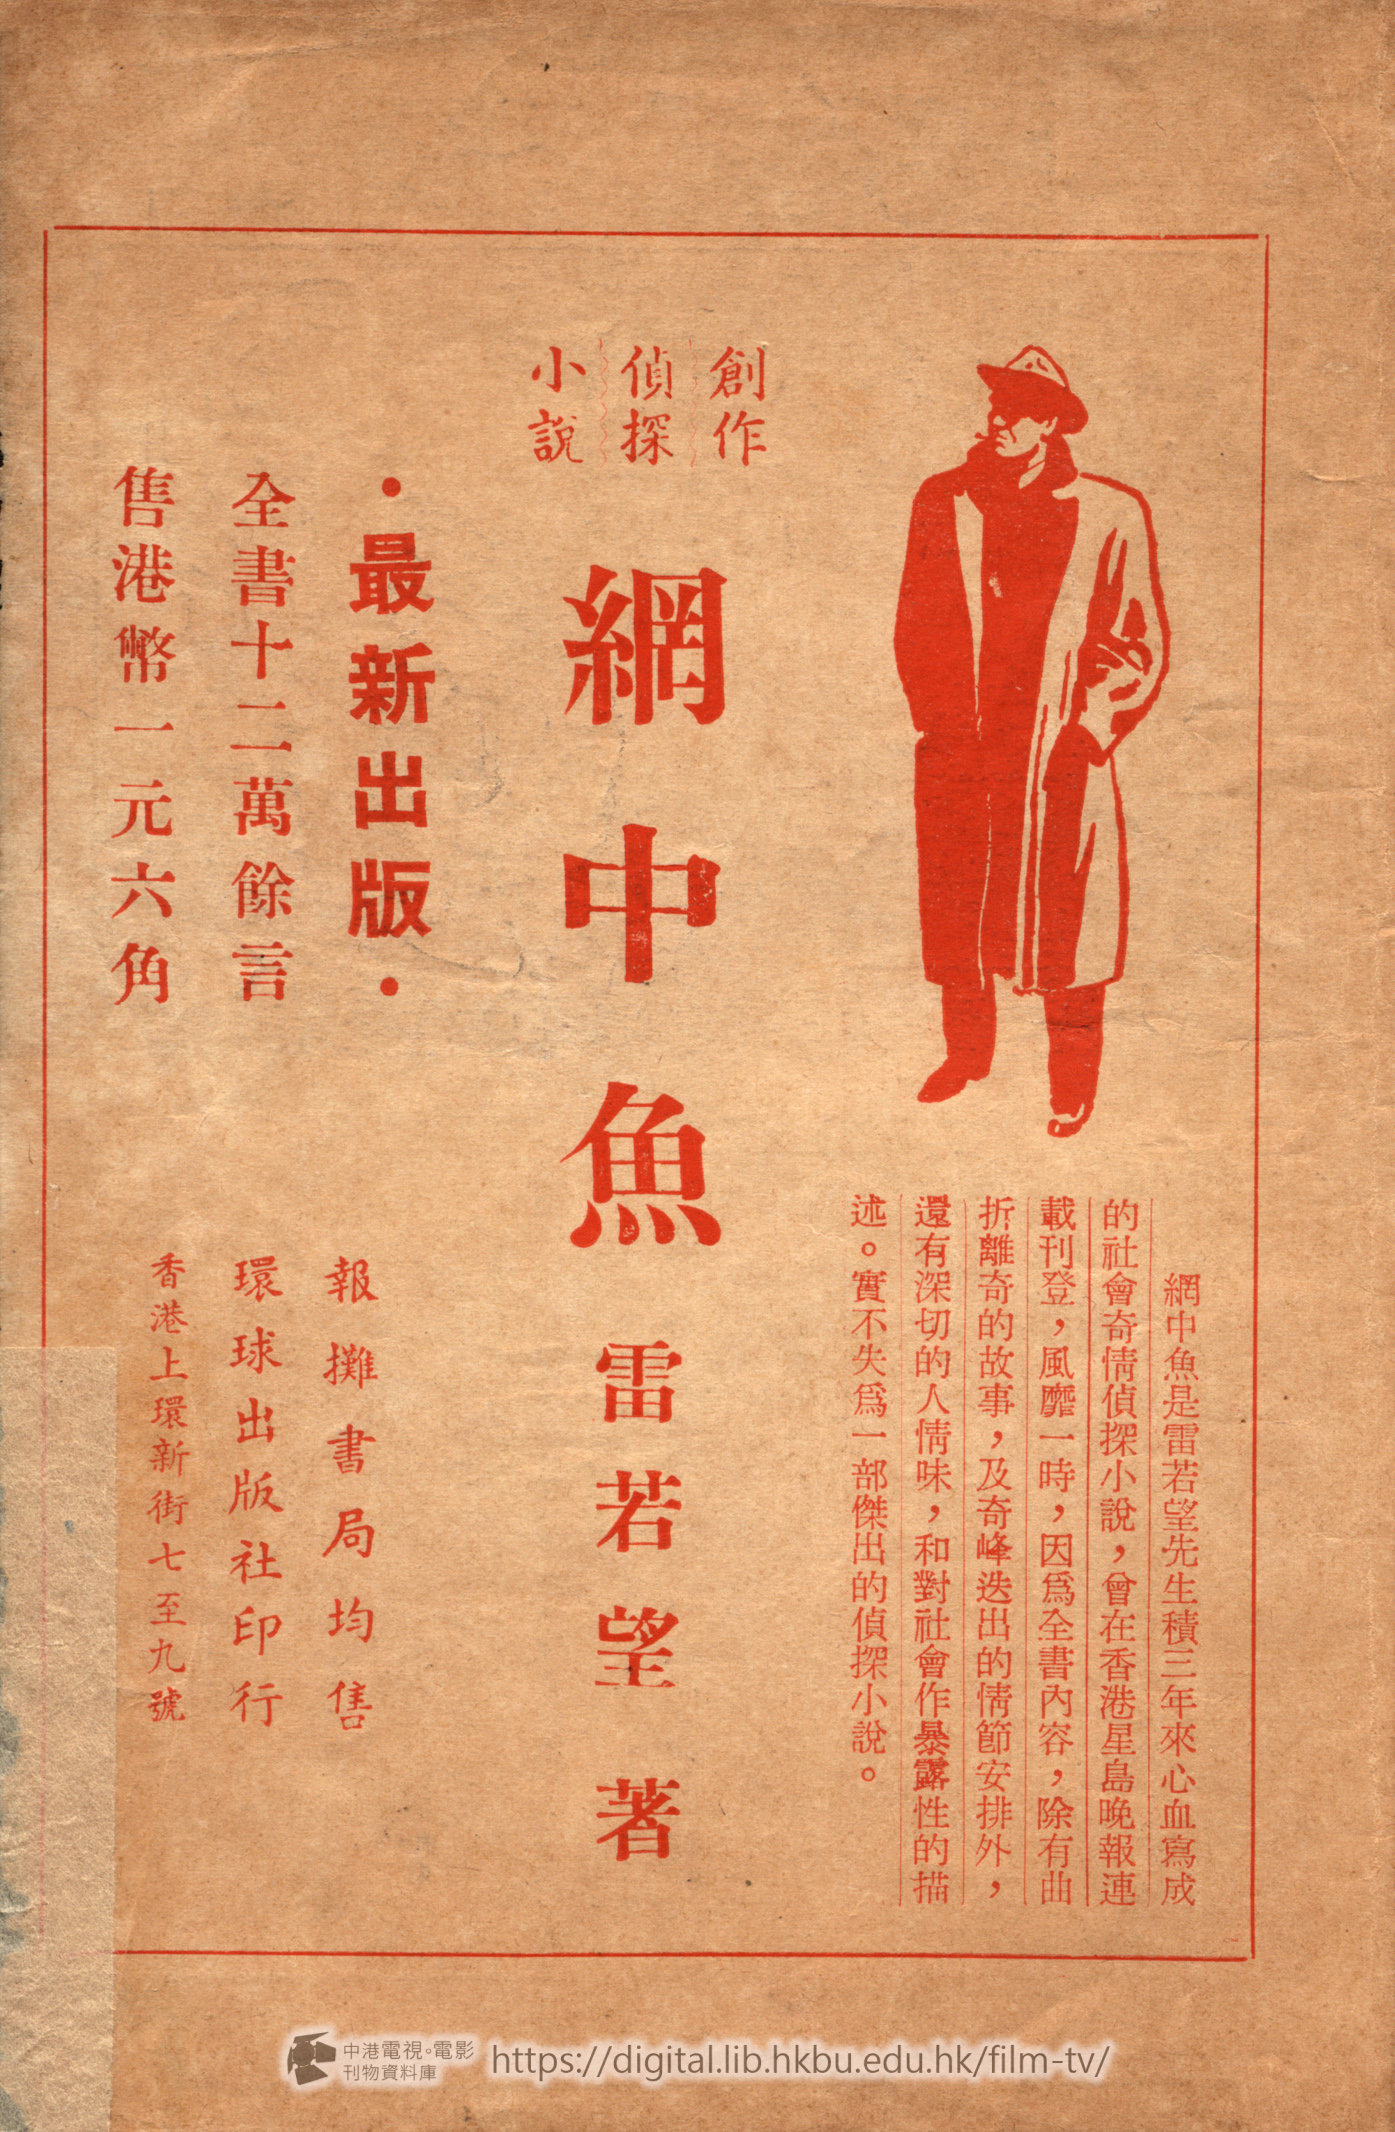 網中魚是雷若望先生積三年來心血寫成
的社會奇情偵探小說，曾在香港星島晚報連
載刊登，風靡一時，因爲全書內容，除有曲
折離奇的故事，及奇峰迭出的情節安排外，
還有深切的人情味，和對社會作暴露性的描
述。實不失爲一部傑出的偵探小說。
創作
偵探
小說
網中魚 雷若望 著
·最新出版·
全書十二萬餘言
售港幣一元六角
報攤書局均售
環球出版社印行
香港上環新街七至九號
中港電視。電影
刊物資料庫
https://digital.lib.hkbu.edu.hk/film-tv/